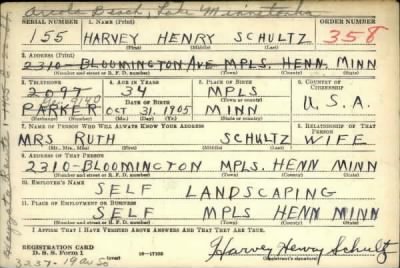 Arcola Beach, Lake Minnetonka
SERIAL NUMBER 1. NAME (Print) ORDER NUMBER
155 HARVEY HENRY SCHULTZ 358
(First) (Middle) (Last)
2. ADDRESS (Print)
2310-BLOOMINGTON AVE MPLS. HENN. MINN
(Number and street or R. F. D. number) (Town) (County) (State)
3. TELEPHONE 4. AGE IN YEARS 5. PLACE OF BIRTH 6. COUNTRY OF CITIZENSHIP
2097 34 MPLS
DATE OF BIRTH (Town or county) U.S.A.
PARKER OCT 31, 1905 MINN
(Exchange) (Number) (Mo.) (Day) (Yr.) (State or country)
7. NAME OF PERSON WHO WILL ALWAYS KNOW YOUR ADDRESS 8. RELATIONSHIP OF THAT PERSON
MRS RUTH SCHULTZ WIFE
(Mr., Mrs., Miss) (First) (Middle) (Last)
9. ADDRESS OF THAT PERSON
2310-BLOOMINGTON MPLS. HENN MINN
(Number and street or R. F. D. number) (Town) (County) (State)
10. EMPLOYER'S NAME
SELF LANDSCAPING
11. PLACE OF EMPLOYMENT OR BUSINESS
SELF MPLS HENN MINN
(Number and street or R. F. D. number) (Town) (County) (State)
I AFFIRM THAT I HAVE VERIFIED ABOVE ANSWERS AND THAT THEY ARE TRUE.
REGISTRATION CARD
D. S. S. Form 1 16—17105 Harvey Henry Schultz
(Registrant's signature)